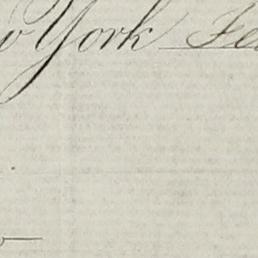 York Fe